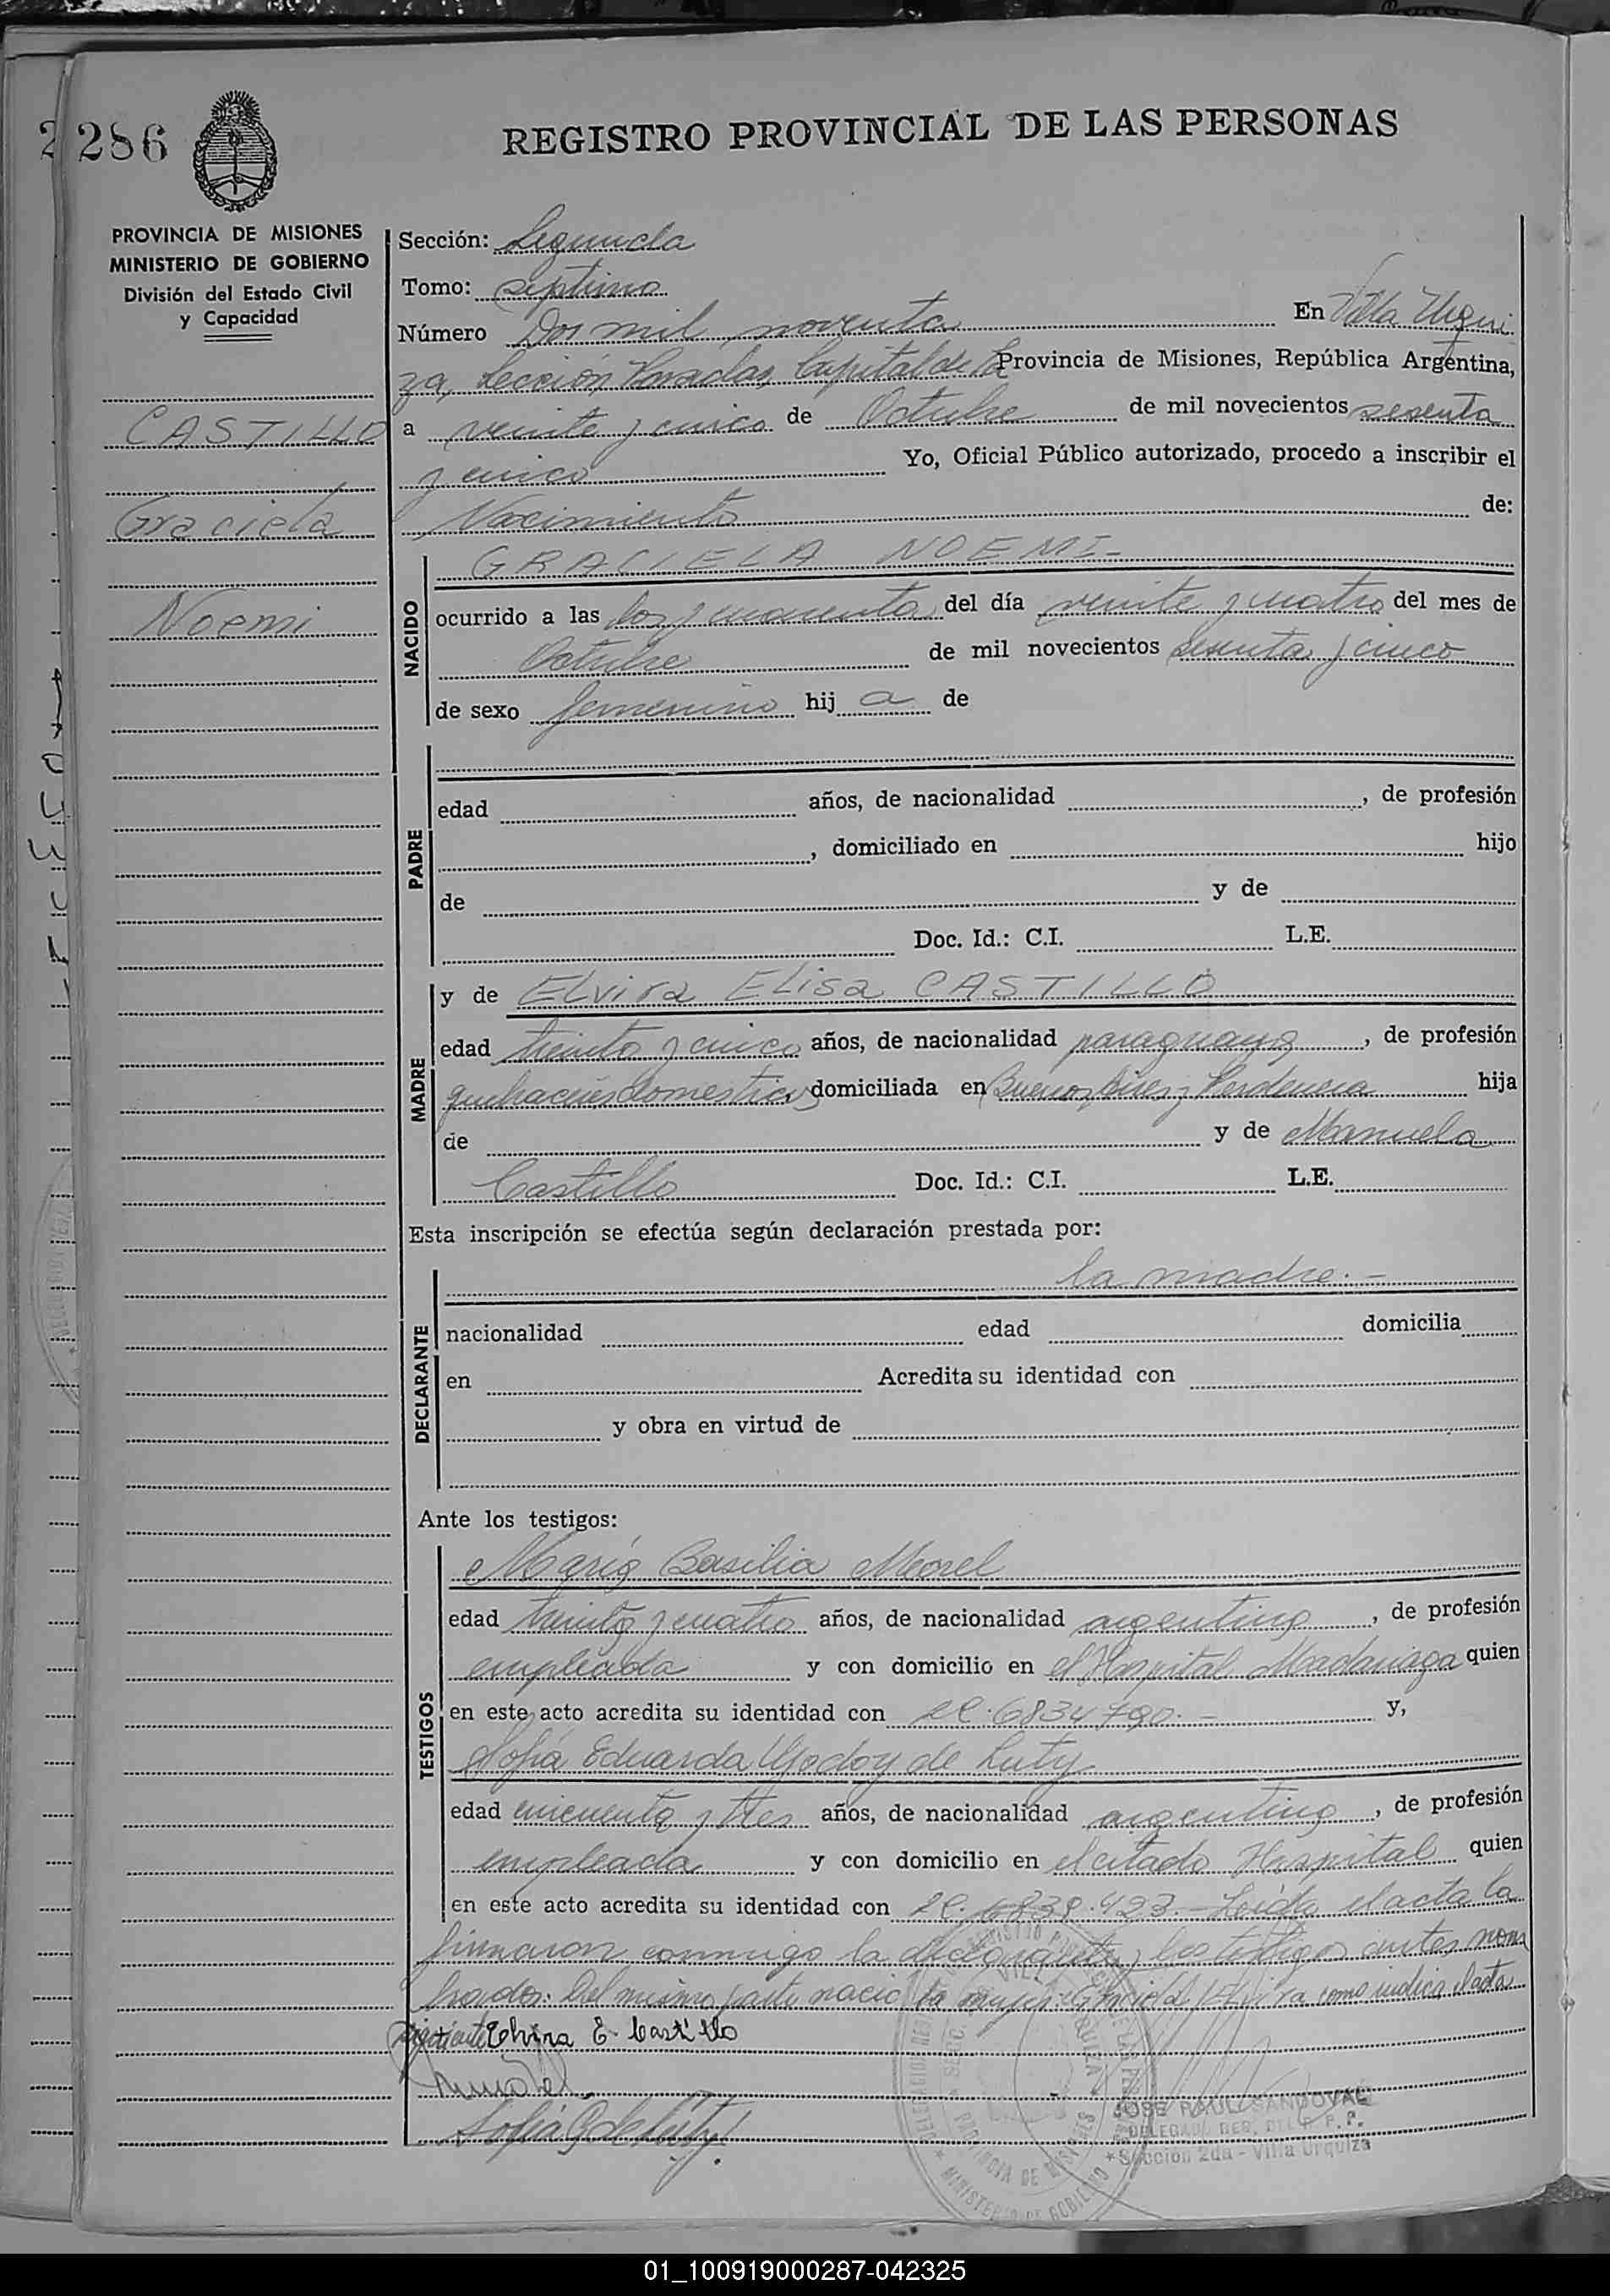 286
REGISTRO PROVINCIAL DE LAS PERSONAS
PROVINCIA DE MISIONES
MINISTERIO DE GOBIERNO
División del Estado Civil
y Capacidad
CASTILLO
Graciela
Noemi
Sección: Segunda
Tomo: septimo
Número Dos mil noventa En Villa Urqui
za, Sección, Posadas, Capital de la Provincia de Misiones, República Argentina,
a veinte y cinco de Octubre de mil novecientos sesenta
y cinco Yo, Oficial Público autorizado, procedo a inscribir el
Nacimiento de:
NACIDO
GRACIELA NOEMI-
ocurrido a las dos y cuarenta del día veinte y cuatro del mes de
Octubre de mil novecientos sesenta y cinco
de sexo femenino hija de
PADRE
edad años, de nacionalidad , de profesión
, domiciliado en hijo
de y de
Doc. Id.: C.I. L.E.
MADRE
y de Elvira Elisa CASTILLO
edad treinta y cinco años, de nacionalidad paraguaya, de profesión
quehaceres domesticos domiciliada en Buenos Aires y hija
de y de Manuela
Castillo Doc. Id.: C.I. L.E.
Esta inscripción se efectúa según declaración prestada por:
DECLARANTE
la madre.-
nacionalidad edad domicilia
en Acredita su identidad con
y obra en virtud de
Ante los testigos:
TESTIGOS
María Basilia Morel
edad treinta y cuatro años, de nacionalidad argentina, de profesión
empleada y con domicilio en el Hospital Madariaga quien
en este acto acredita su identidad con LC. 6834790.- y,
Sofía Eduarda Godoy de Luty
edad cincuenta y tres años, de nacionalidad argentina, de profesión
empleada y con domicilio en el citado Hospital quien
en este acto acredita su identidad con LC. .423.- Leída el acta la
firmaron conmigo la declarante y los testigos antes nom
brados. Del mismo parto nació la mujer Elvira como indica el acta
siguiente Elvira E. Castillo
JOSE RAUL SANDOVAL
DELEGADO REG. DEL E. P. P.
Sección 2da - Villa Urquiza
01_100919000287-042325